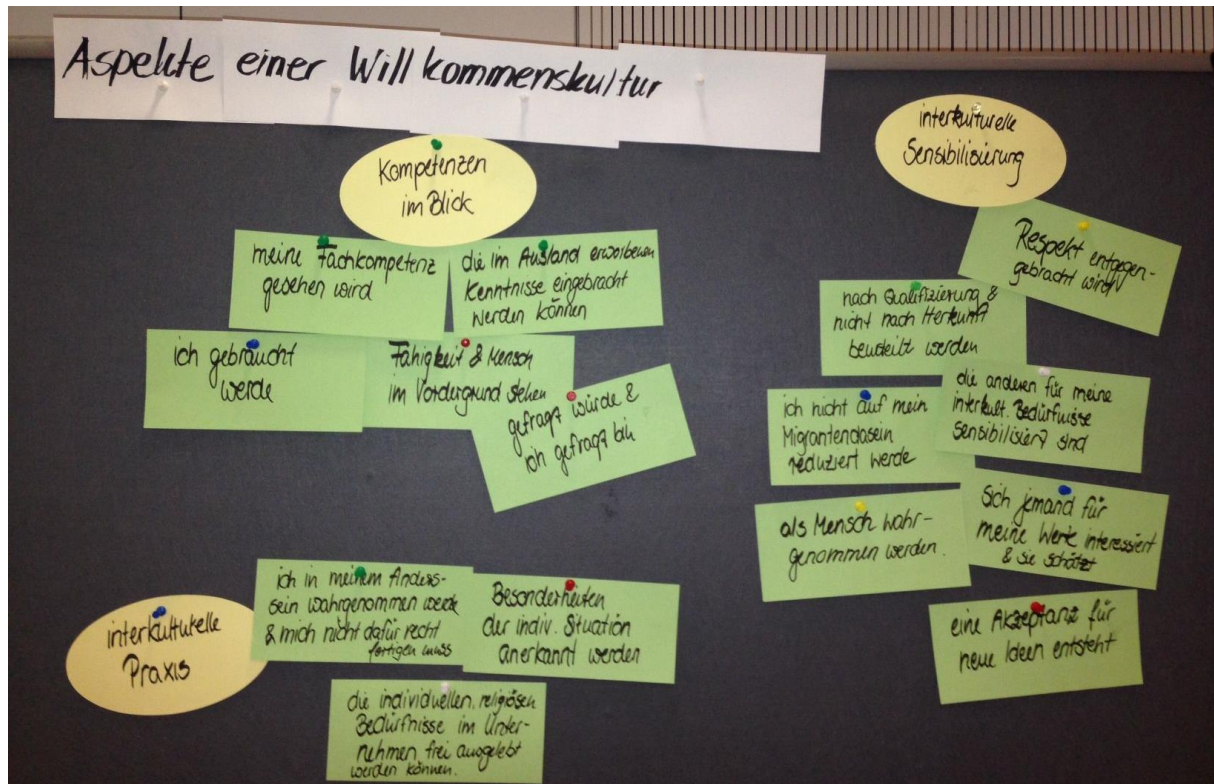 Aspekte einer Willkommenskultur
Kompetenzen
im Blick
meine Fachkompetenz
gesehen wird
die im Ausland erworbenen
Kenntnisse eingebracht
werden können
ich gebraucht
werde
Fähigkeit & Mensch
im Vordergrund stehen
gefragt würde &
ich gefragt bin
interkulturelle
Sensibilisierung
Respekt entgegen-
gebracht wird
nach Qualifizierung &
nicht nach Herkunft
beurteilt werden
die anderen für meine
interkult. Bedürfnisse
sensibilisiert sind
ich nicht auf mein
Migrantendasein
reduziert werde
sich jemand für
meine Werte interessiert
& sie schätzt
als Mensch wahr-
genommen werden.
eine Akzeptanz für
neue Ideen entsteht
interkulturelle
Praxis
ich in meinem Anders-
sein wahrgenommen werde
& mich nicht dafür recht
fertigen muss
Besonderheiten
der indiv. Situation
anerkannt werden
die individuellen, religiösen
Bedürfnisse im Unter-
nehmen frei ausgelebt
werden können.